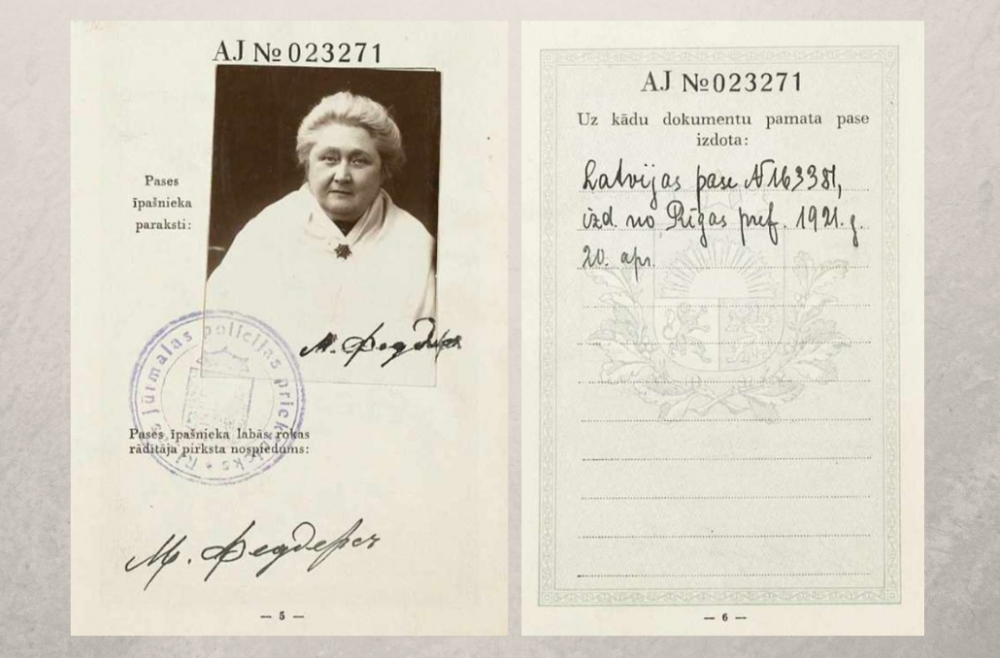 AJ № 023271
Pases
īpašnieka
paraksti:
М. Феддерсъ
Rīgas Jūrmalas policijas priekšnieks
Pases īpašnieka labās rokas
rādītāja pirksta nospiedums:
М. Феддерсъ
— 5 —
AJ № 023271
Uz kādu dokumentu pamata pase
izdota:
Latvijas pase № 163381,
izd no Rīgas pref. 1921. g.
20. apr.
— 6 —